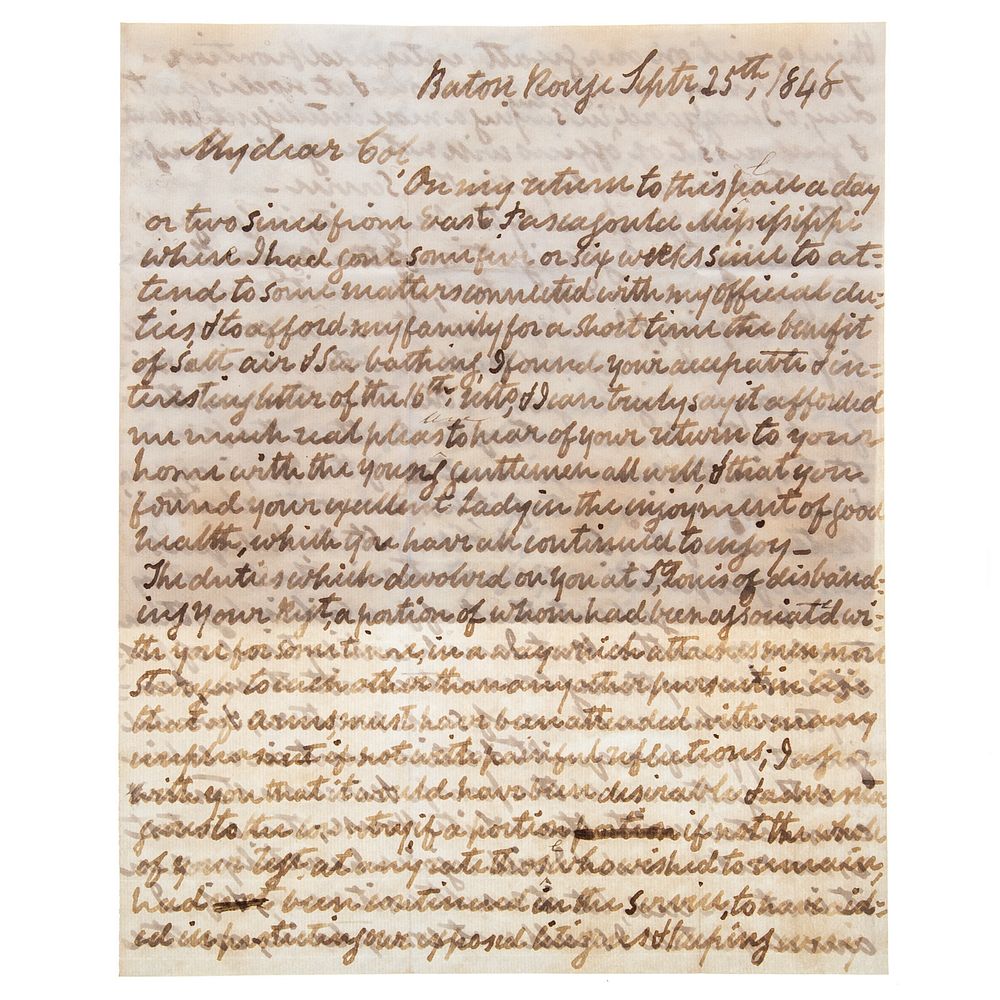 Baton Rouge Septr, 25th, 1848
My dear Col,
On my return to this place a day
or two since from East Pascagoula Mississippi
where I had gone some five or six weeks since to at=
tend to some matters connected with my official du=
ties, & to afford my family for a short time the benefit
of salt air & sea bathing, I found your acceptable & in=
teresting letter of the 16th, Ulto, & I can truly say it afforded
me much real pleasure to hear of your return to your
home with the young gentlemen all well, & that you
found your excellent Lady in the enjoyment of good
health, which you have all continued to enjoy —
The duties which devolved on you at St Louis of disband=
ing your Regt, a portion of whom had been associat'd wi=
th you for some time, in a way which attaches men more
to each other than any other pursuit in life
that of arms, must have been attended with many
unpleasant if not with painful reflections; I agree
with you that it would have been desirable & advanta
geous to the country if a portion if not the whole
of your Regt at any rate those who wished to remain,
had been continued in the service, to have aid=
ed in protecting our exposed & keeping